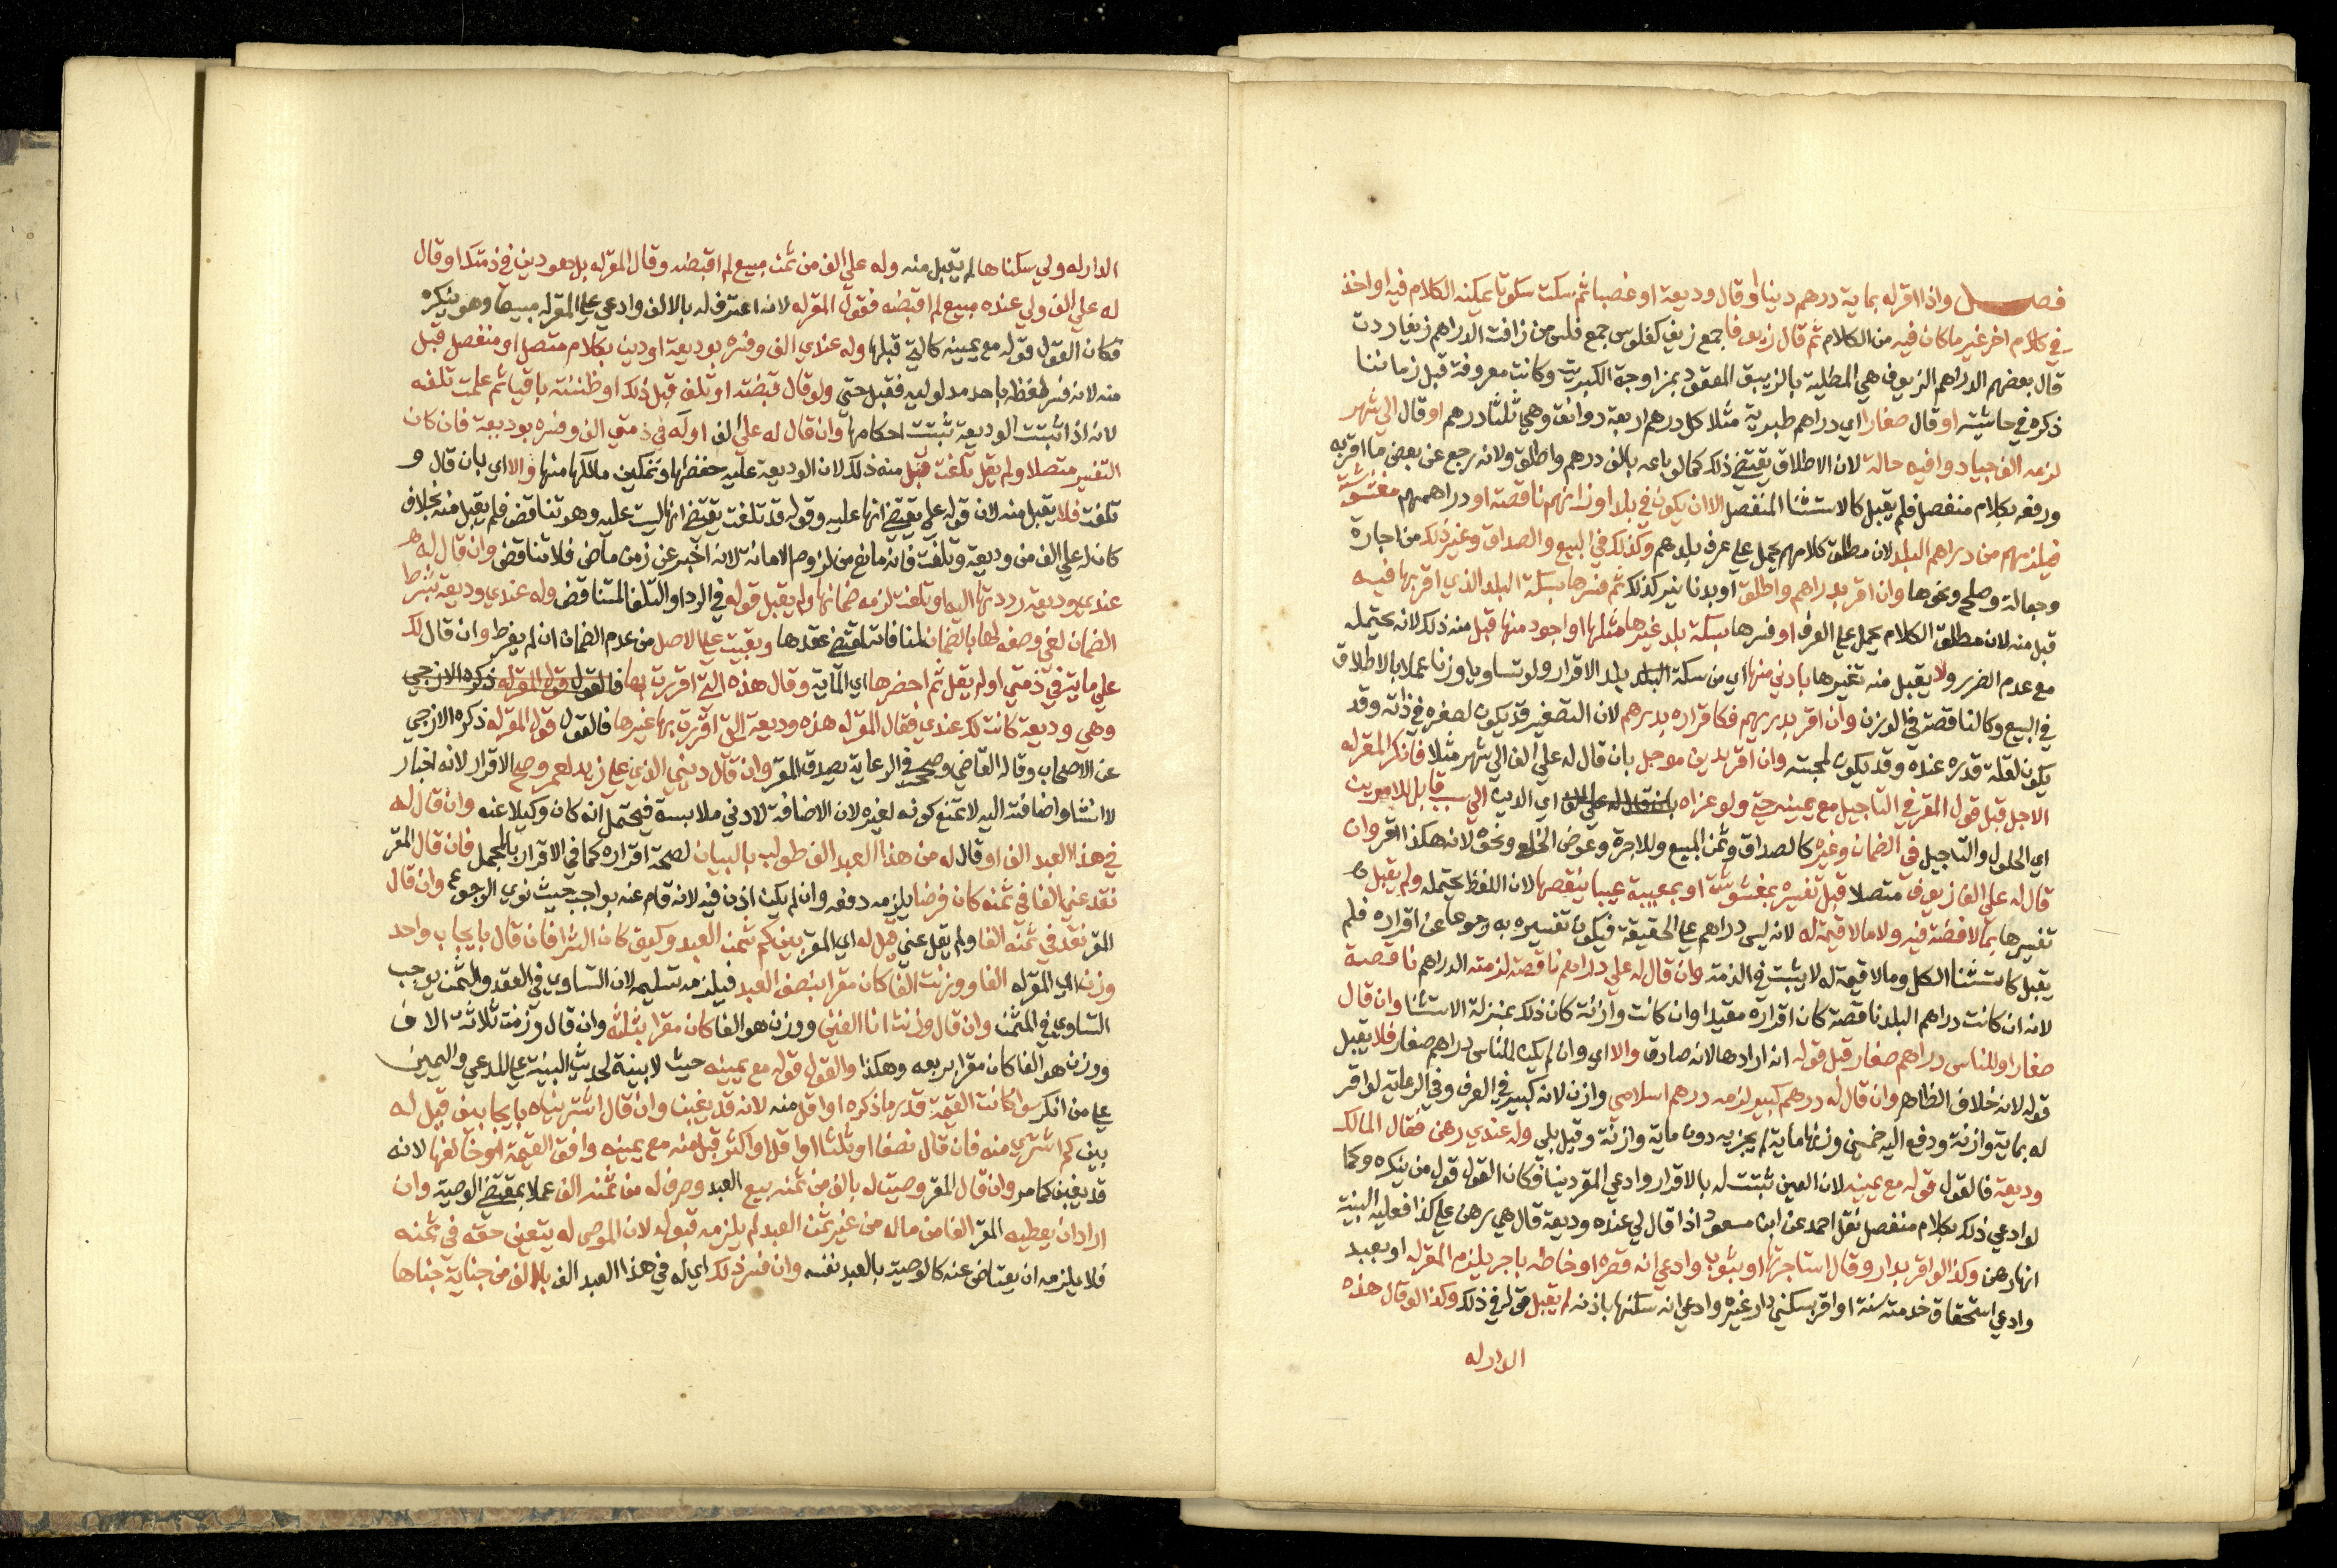 فصل واذا اقر له بماية درهم دينا او قال وديعة او غصبا ثم سكت سكوتا يمكنه الكلام فيه او اخذ
في كلام اخر غير ما كان فيه من الكلام ثم قال زيوفا جمع زيف كفلوس جمع فلس من زافت الدراهم زيفا ردت
قال بعضهم الدراهم الزيوف هي المطلية بالزيبق المعقود بمزاوجة الكبريت وكانت معروفة قبل زماننا
ذكره في حاشيته او قال صغارا اي دراهم طبرية مثلا كل درهم اربعة دوانق وهي ثلثا درهم او قال الي شهر
لزمه الف جياد وافيه حالة لان الاطلاق يقتضي ذلك كما لو باعه بالف درهم واطلق ولانه رجع عن بعض ما اقر به
ورفعه بكلام منفصل فلم يقبل كالاستثنا المنفصل الا ان يكون في بلد اوزانهم ناقصة او دراهمهم مغشوشة
فيلزمهم من دراهم البلد لان مطلق كلامهم يحمل علي عرف بلدهم وكذلك في البيع والصداق وغير ذلك من اجارة
وجعالة وصلح ونحوها وان اقر بدراهم واطلق او بدنانير كذلك ثم فسرها بسكة البلد الذي اقر بها فيه
قبل منه لان مطلق الكلام يحمل علي العرف او فسرها بسكة بلد غيرها مثلها او اجود منها قبل منه ذلك لانه يحتمله
مع عدم الضرر ولا يقبل منه تفسيرها بادني منها اي من سكة البلد بلد الاقرار ولو تساويا وزنا عملا بالاطلاق
في البيع وكالناقصة في الوزن وان اقر بدريهم فكاقراره بدرهم لان التصغير قد يكون لصغره في ذاته وقد
يكون لقلة قدره عنده وقد يكون لمحبته وان اقر بدين موجل بان قال له علي الف الي شهر مثلا فانكر المقر له
الاجل قبل قول المقر في التاجيل مع يمينه حتي ولو عزاه بان قال له علي الف اي الدين الي سبب قابل للامرين
اي الحلول والتاجيل في الضمان وغيره كالصداق وثمن المبيع وللاجرة وعوض الخلع ونحوه لانه هكذا اقر وان
قال له علي الف زيوف متصلا قبل تفسيره بمغشوشة او بمعيبة عيبا ينقصها لان اللفظ يحتمله ولم يقبل
تفسيرها بما لا فضة فيه ولا ما لا قيمة له لانه ليس دراهم علي الحقيقة فيكون تفسيره به رجوعا عن اقراره فلم
يقبل كاستثنا الكل وما لا قيمة له لا يثبت في الذمة وان قال له علي دراهم ناقصة لزمته الدراهم ناقصة
لانه ان كانت دراهم البلد ناقصة كان اقراره مقيدا وان كانت وازنة كان ذلك بمنزلة الاستثنا وان قال
صغارا وللناس دراهم صغار قبل قوله انه ارادها لانه صادق والا اي وان لم يكن للناس دراهم صغار فلا يقبل
قوله لانه خلاف الظاهر وان قال له درهم كبير لزمه درهم اسلامي وازن لانه كبير في العرف وفي الرعاية لو اقر
له بماية وازنة ودفع اليه خمسين وزنها ماية لم يجزيه دون ماية وازنة وقيل بلي وله عندي رهن فقال المالك
وديعة فالقول قوله مع يمينه لان العين ثبتت له بالاقرار وادعي المقر دينا فكان القول قول من ينكره وكما
لو ادعي ذلك بكلام منفصل نقل احمد عن ابن مسعود اذا قال لي عنده وديعة قال هي رهن علي كذا فعليه البينة
انها رهن وكذا لو اقر بدار وقال استاجرتها او بثوب وادعي انه قصره او خاطه باجر يلزم المقر له او بعبد
وادعي استحقاق خدمته سنة او اقر بسكني دار غيره وادعي انه سكنها باذنه لم يقبل قوله في ذلك وكذا لو قال هذه
الدار له
الدار له ولي سكناها لم يقبل منه وله علي الف من ثمن مبيع لم اقبضه وقال المقر له بل هو دين في ذمتك او قال
له علي الف ولي عنده مبيع لم اقبضه فقول المقر له لانه اعترف له بالالف وادعي علي المقر له مبيعا وهو ينكره
فكان القول قوله مع يمينه كالتي قبلها وله عندي الف وفسره بوديعة او دين بكلام متصل او منفصل قبل
منه لانه فسر لفظه باحد مدلوليه فقبل حتي ولو قال قبضته او تلف قبل ذلك او ظننته باقيا ثم علمت تلفه
لانه اذا ثبتت الوديعة ثبتت احكامها وان قال له علي الف او له في ذمتي الف وفسره بوديعة فان كان
التفسير متصلا ولم يقل تلفت قبل منه ذلك لان الوديعة عليه حفظها وتمكين مالكها منها والا اي بان قال و
تلفت فلا يقبل منه لان قوله علي يقتضي انها عليه وقوله قد تلفت يقتضي انها ليست عليه وهو تناقض فلم يقبل منه بخلاف
كان له علي الف من وديعة وتلفت فانه مانع من لزوم الامانة لانه اخبر عن زمن ماض فلا تناقض وان قال له
عندي وديعة رددتها اليه او تلفت لزمه ضمانها ولم يقبل قوله في الرد او التلف للتناقض وله عندي وديعة بشرط
الضمان لغي وصفه لها بالضمان لمنافاته لمقتضي عقدها وبقيت علي الاصل من عدم الضمان ان لم يفرط وان قال لك
علي ماية في ذمتي او لم يقل ثم احضرها اي الماية وقال هذه التي اقررت بها فالقول قول المقر له ذكره الازجي
وهي وديعة كانت لك عندي فقال المقر له هذه وديعة التي اقررت بها غيرها فالقول قول المقر له ذكره الازجي
عن الاصحاب وقاله القاضي وصحح في الرعاية يصدق المقر وان قال ديني الذي علي زيد لعمرو صح الاقرار لانه اخبار
لا انشا واضافته اليه لا تمنع كونه لغيره لان الاضافة لادني ملابسة فيحتمل انه كان وكيلا عنه وان قال له
في هذا العبد الف او قال له من هذا العبد الف طولب بالبيان لصحة اقراره كما في الاقرار بالمجمل فان قال المقر
نقد عني الفا في ثمنه كان قرضا يلزمه دفعه وان لم يكن اذن فيه لانه قام عنه بواجب حيث نوي الرجوع وان قال
المقر نقد في ثمنه الفا ولم يقل عني قيل له اي المقر بين كم ثمن العبد وكيف كان الشرا فان قال بايجاب واحد
وزن اي المقر له الفا ووزنت الفا كان مقرا بنصف العبد فيلزمه تسليمه لان التساوي في العقد والثمن يوجب
التساوي في المثمن وان قال وزنت انا الفين ووزن هو الفا كان مقرا بثلثه وان قال وزنت ثلاثة الاف
ووزن هو الفا كان مقرا بربعه وهكذا والقول قوله مع يمينه حيث لا بينة لحديث البينة علي المدعي واليمين
علي من انكر سوا كانت القيمة قدر ما ذكره او اقل منه لانه قد يغبن وان قال اشتريناه بايجابين قيل له
بين كم اشتري منه فان قال نصفا او ثلثا او اقل او اكثر قبل منه مع يمينه وافق القيمة او خالفها لانه
قد يغبن كما مر وان قال المقر وصيت له بالف من ثمنه بيع العبد وصرف له من ثمنه الف عملا بمقتضي الوصية وان
اراد ان يعطيه المقر الفا من ماله من غير ثمن العبد لم يلزمه قبوله لان الموصي له يتعين حقه في ثمنه
فلا يلزمه ان يعتاض عنه كالوصية بالعبد نفسه وان فسر ذلك اي له في هذا العبد الف بالف من جناية جناها